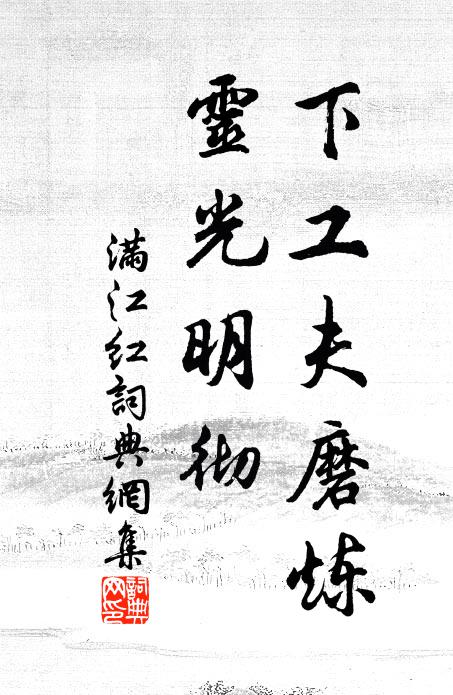 下工夫磨炼
靈光明彻
满江红詞典網集
詞典网印